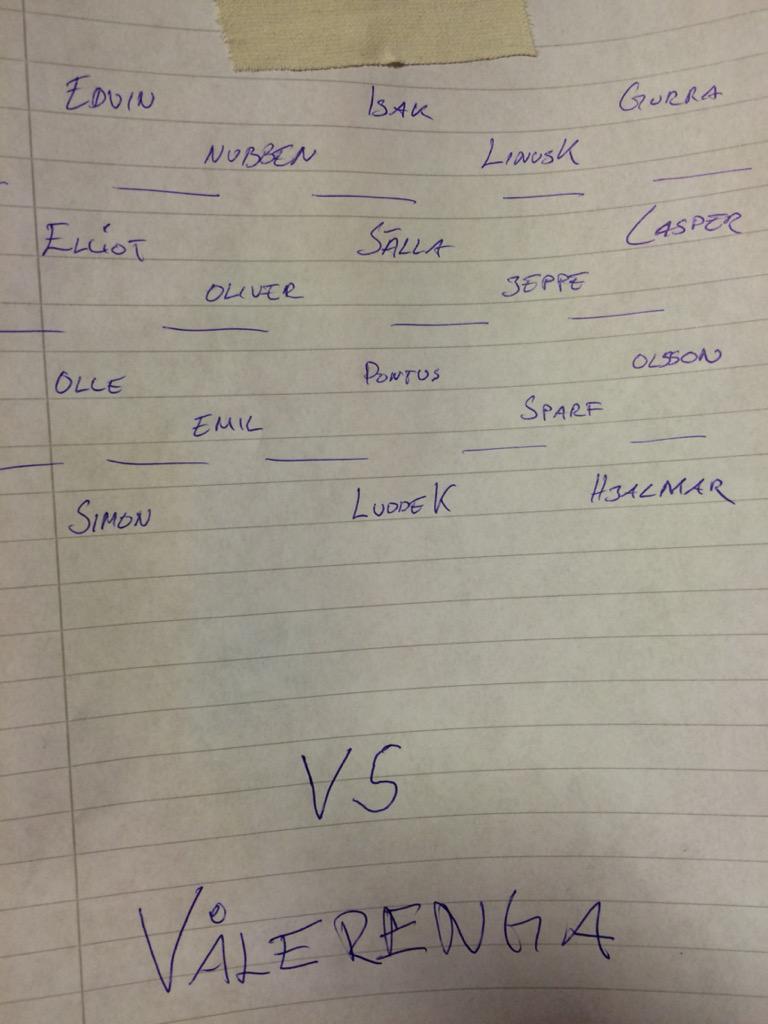 EDVIN ISAK GURRA
NUBBEN LINUSK
ELLIOT SÄLLA CASPER
OLIVER JEPPE
OLLE PONTUS OLSSON
EMIL SPARF
SIMON LUDDEK HJALMAR
VS
VÅLERENGA